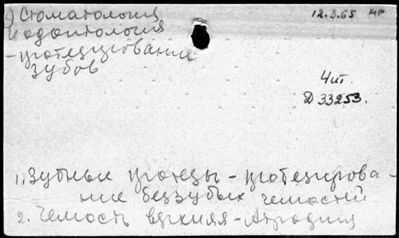 ) Стоматология 12.3.65 мр
и одонтология
-протезирование
зубов
Чит.
Д 33253.
1. Зубные протезы - протезирова-
ние беззубых челюстей
2. Челюсть верхняя - Атрофия